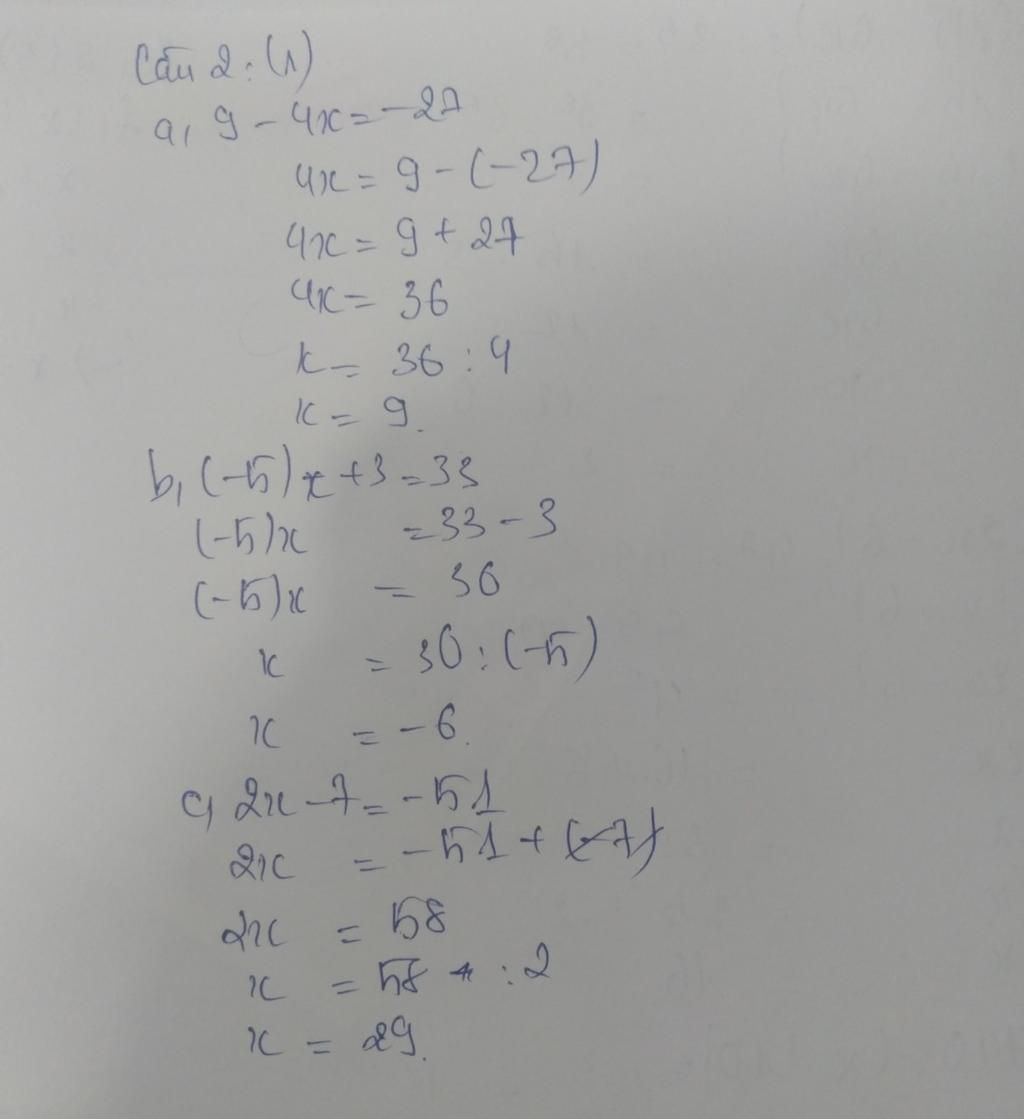 Câu 2: (1)
a, 9 - 4x = -27
4x = 9 - (-27)
4x = 9 + 27
4x = 36
x = 36 : 4
x = 9.
b, (-5)x + 3 = 33
(-5)x = 33 - 3
(-5)x = 30
x = 30 : (-5)
x = -6.
c, 2x - 7 = -51
2x = -51 + 7
2x = 58
x = 58 : 2
x = 29.